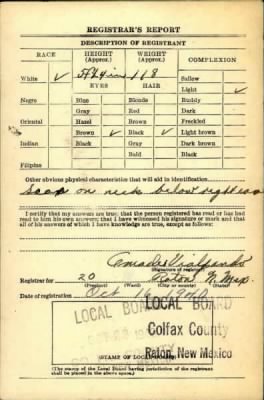 REGISTRAR'S REPORT
DESCRIPTION OF REGISTRANT
RACE HEIGHT (Approx.) WEIGHT (Approx.) COMPLEXION
5 ft 4 in 118 Sallow
White ✓ EYES HAIR Light ✓
Negro Blue Blonde Ruddy
Gray Red Dark
Oriental Hazel Brown Freckled
Brown ✓ Black ✓ Light brown
Indian Black Gray Dark brown
Bald Black
Filipino
Other obvious physical characteristics that will aid in identification
scar on neck below right ear
I certify that my answers are true; that the person registered has read or has had
read to him his own answers; that I have witnessed his signature or mark and that
all of his answers of which I have knowledge are true, except as follows:
(Signature of registrar)
Registrar for 20 Raton N. Mex
(Precinct) (Ward) (City or county) (State)
Date of registration Oct 16 1940
LOCAL BOARD
LOCAL BOARD
Colfax County
Raton, New Mexico
(STAMP OF LOCAL BOARD)
(The stamp of the Local Board having jurisdiction of the registrant
shall be placed in the above space.)